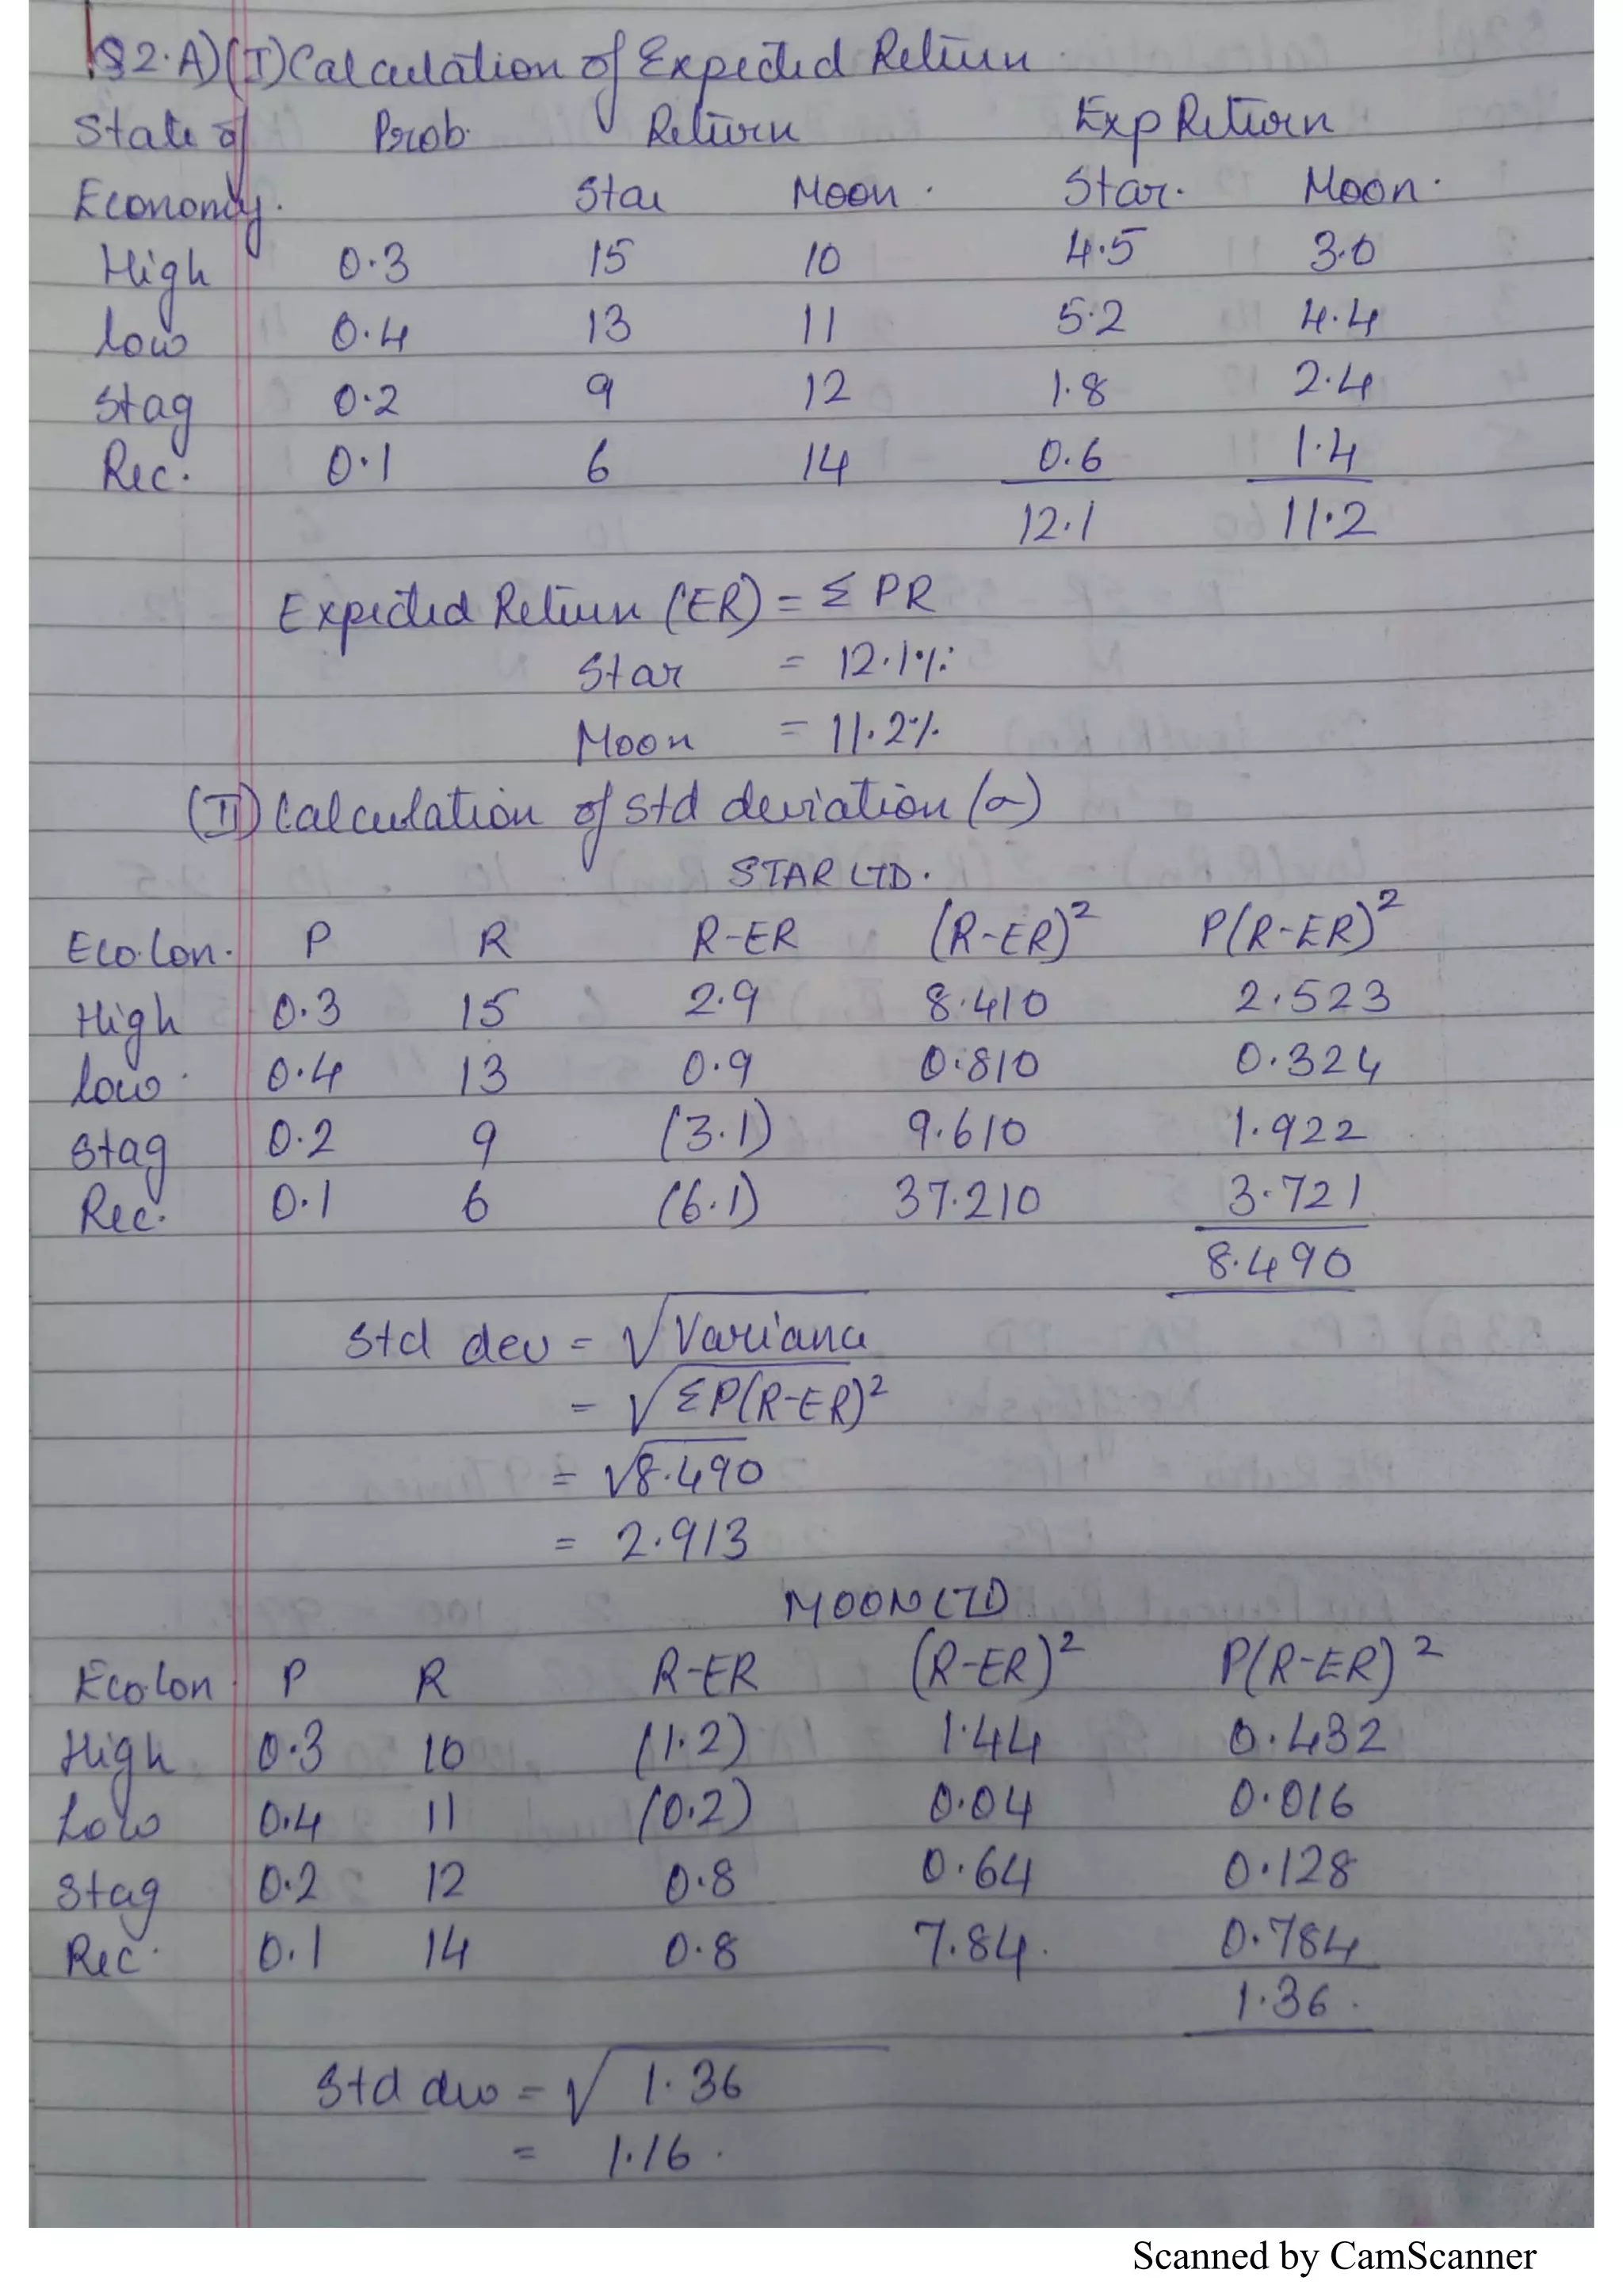 Q2.A)(I) Calculation of Expected Return.
State of Prob. Return Exp Return
Economy. Star Moon. Star. Moon.
High 0.3 15 10 4.5 3.0
Low 0.4 13 11 5.2 4.4
Stag 0.2 9 12 1.8 2.4
Rec. 0.1 6 14 0.6 1.4
12.1 11.2
Expected Return (ER) = Σ PR
Star = 12.1%
Moon = 11.2%
(II) Calculation of std deviation (σ)
STAR LTD.
Eco. Con. P R R-ER (R-ER)² P(R-ER)²
High 0.3 15 2.9 8.410 2.523
Low. 0.4 13 0.9 0.810 0.324
Stag 0.2 9 (3.1) 9.610 1.922
Rec. 0.1 6 (6.1) 37.210 3.721
8.490
Std dev = √Variance
= √ΣP(R-ER)²
= √8.490
= 2.913
MOON LTD
Eco. Con P R R-ER (R-ER)² P(R-ER)²
High 0.3 10 (1.2) 1.44 0.432
Low 0.4 11 (0.2) 0.04 0.016
Stag 0.2 12 0.8 0.64 0.128
Rec. 0.1 14 0.8 7.84. 0.784
1.36.
Std dev = √1.36
= 1.16.
Scanned by CamScanner